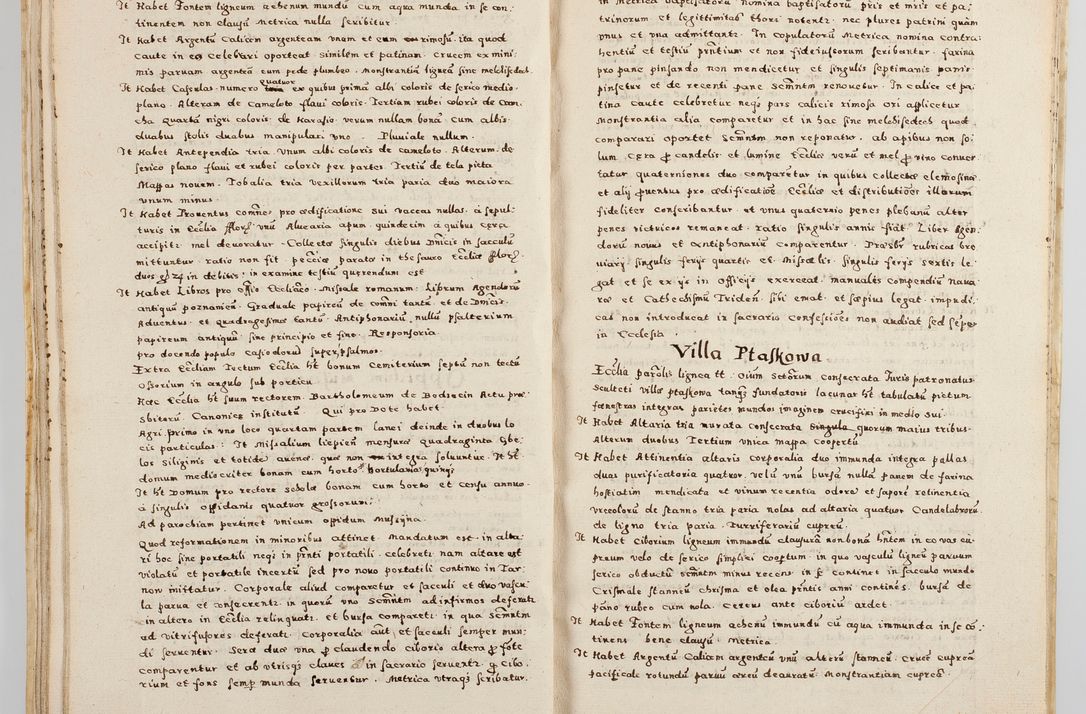 It Habet Fontem ligneum aebenum mundũ cum aqua munda in se con:
tinentem non clausũ Metrica nulla scribitur.
It Habet Argentũ Calicem argenteam unem et cum rimosũ. ita quod
caute in eo Celebrari oporteat similem et patinam Crucem ex mini:
mis paruam argenteã cum pede plumbeo. Monstrantiã ligneã sine melchisedech
It Habet Casulas numero quatuor ex quibus primã albi coloris de serico medio
plano. Alteram de Cameloto flaui coloris. Tertiam rubei coloris de Cam
cha Quartã nigri coloris de Harasio. verum nullam bonã Cum albis
duabus stolis duabus manipulari uno. Pluuiale nullum.
It Habet Antependia tria. Vnum albi coloris de cameloto. Alterum de
serico plano flaui et rubei coloris per partes. Tertiũ de tela picta
Mappas nouem. Tobalia tria vexillorum tria paria duo maiora
vnum minus.
It Habet Prouentus com̃nes pro ædificatione sui vaccas nullas. à sepul:
turis in Ec̃clia flor: vnũ Aluearia apum quindecim à quibus cera
accipitz mel deuoratur. Collectæ singulis diebus Dñicis in sacculũ
mittuntur. ratio non fit. pecciæ parata in thesauro ec̃cliæ flor:
duos gr 24 in debitis: in examine testiũ querendum est
It Habet Libros pro off̃io Ec̃cliaco. Missale romanum: Librum Agendorũ
antiquũ poznamen. Graduale papireũ de com̃ni tantũ et de Dñicis
Aduentus et quadragesimæ tantũ. Antiphonariũ nullũ psalterium
papireum antiquũ sine principio et fine. Responsoria
pro docendo populo Casiodorus super psalmos.
Extra Ec̃cliam Tectum Ec̃clia h̃t bonum Cemiterium septũ non tectũ
Ossorium in angulo sub porticu.
Hæc Ec̃clia h̃t suum rectorem Bartholomeum de Bodzecin Actu præ:
sbiterũ Canonice institutũ. Qui pro Dote habet
Agri primo in vno loco quartam partem lanei deinde in duobus lo
cis particulas: It Missalium liepien mensuræ quadraginta Cbe:
los siliginis et totidẽ auenæ que non integra soluuntur. It h̃t
domum mediocriter bonam cum horto hortulanis quinq;
It h̃t Domum pro rectore scholæ bonam cum horto et censu annuo
à singulis oppidanis quatuor grossorum.
Ad parochiam pertinet vnicum oppidum Mussyna.
Quod reformationem in minoribus attinet. Mandatum est in alta:
ri hoc sine portatili neq; in p̃nti portatili. celebretz nam altare est
violatũ et portatile incertũ sed pro nouo portatili continuo in Tar:
now mittatur. Corporale aliud comparetur et sacculi et duo vascu:
la parua et consecrentz in quorũ vno Sem̃ntm ad infirmos deferatz
in altero in Ec̃clia relinquatz et bursa comparetz in qua Sem̃ntm
ad vitrifusores deferatz. Corporalia aũt et sacculi semper mun:
di seruentur. Seræ duæ vna p claudendo ciborio altera p fõte
comparentur et ab vtrisq; claues in sacrario seruentz p Cibo:
rium et fons semp munda seruentur. Metrica vtraq; scribatur.
in Metrica baptisatorũ nomina baptisatorũ p̃ris et m̃ris et pa:
trinorum et legittimitas thori notentz nec plures patrini quàm
vnus et vna admittantz. In copulatorũ Metrica nomina contra:
hentiũ et testiũ p̃ntium et non fideiussorum scribantur. farina
pro pane pinsando non mendicetur et singulis septimanis panis
pinsetur et de recenti pane Sem̃ntm renouetur. In calice et pa:
tina caute celebretur neq; pars calicis rimosa ori applicetur
Monstrantia alia comparetur et in hac sine melchisedech quod
comparari oportet Sem̃ntm non reponatur. ab apibus non so:
lum cera p candelis et lumine Ec̃cliæ verũ et mel p vino conuer
tatur quaterniones duo comparetur in quibus collectæ elemosinæ
et alij prouentus pro ædificatiõe Ec̃cliæ et distributiões illarum
fideliter conscribantur. et vnus quaternio penes plebanũ alter
penes victricos remaneat. ratio singulis annis fiat. Liber Agen:
dorũ nouus et Antiphonariũ comparentur. Præsbr rubricas bre
uiarij singulis ferijs quartis et Missalis. singulis ferijs sextis le:
gat et se ex ijs in officijs exerceat. manualis compendiũ naua:
ræ et Cathechismũ Triden: sibi emat. et sæpius legat. impudi:
cas non introducat in sacrario confessiões non audiat sed semper
in Ecclesia.
Villa Ptaszkowa
Ec̃clia par̃olis lignea t̃t. Oium S̃ctorum consecrata Iuris patronatus
Sculteti villæ ptaszkowa tanq; fundatoris lacunar h̃t tabulatũ pictum
fenestras integras parietes mundos imaginem crucifixi in medio sui.
It Habet Altaria tria murata consecrata singula quorum maius tribus.
Alterum duobus Tertium vnica mappa coopertũ.
It Habet Attinentia altaris corporalia duo immunda integra pallas
duas purificatoria quatuor. velũ vnũ bursã nullã panem de farina
hostiatim mendicata et vinum recentia odore et sapore retinentia
vrceolorũ de stanno tria paria nolas ad altaria quatuor Candelabrorũ
de ligno tria paria. Turriferariũ cupreũ.
It Habet Ciborium ligneum immundũ clausurã non bonã h̃ntem in eo vas cu:
preum velo de serico simplici coop̃tum in quo vasculũ ligneũ paruum
serico obductũ sem̃ntm minus recens in se continet in sacculo mundo
Crismale stanneũ chrisma et olea p̃ntis anni continẽs. bursã de
pãno rubeo cum nola. Cereus ante ciboriũ ardet.
It Habet Fontem ligneum aebenũ immundũ cũ aqua immunda in se cõ:
tinens bene clausũ. Metrica.
It Habet Argentũ Calicem argenteũ vnũ alterũ stanneũ. Crucẽ cupreã
pacificale rotundũ paruũ æreũ deauratũ. Monstrantiam cupreã